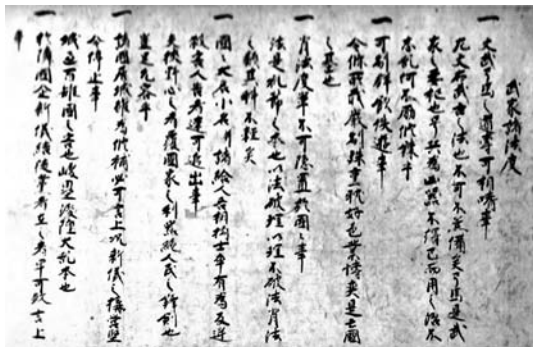 武家諸法度
一 文武弓馬之道専可相嗜事
左文右武古之法也不可不兼備矣弓馬是武
家之要枢也号兵為凶器不得已而用之治不
忘乱何不励修錬乎
一 可制群飲佚遊事
令條所載厳制殊重耽好色業博奕是亡國
之基也
一 背法度輩不可隠置於國々事
法是礼節之本也以法破理以理不破法背法
之類其科不軽矣
一 國々大名小名并諸給人各相抱士卒有為反逆
殺害人告者速可追出事
夫挟野心之者為覆國家之利器絶人民之鋒剣也
豈足允容乎
一 諸國居城雖為修補必可言上況新儀之構営堅
令停止事
城過百雉國之害也峻塁浚隍大乱本也
一 於隣國企新儀結徒黨者在之者早可致言上
事